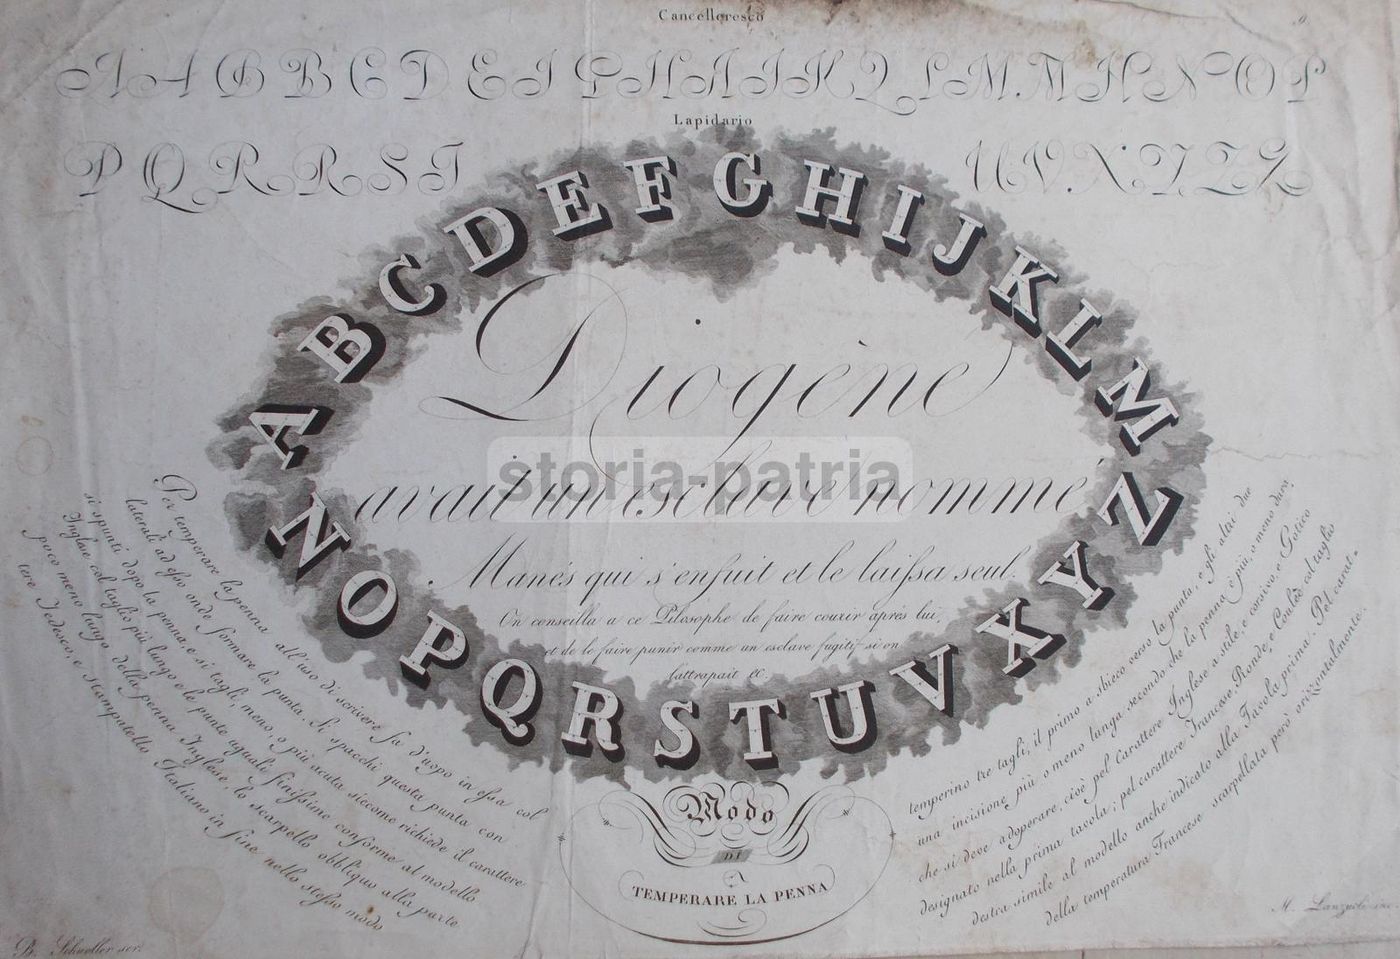 Cancelleresco
9
A A B B C D E F G H A I K Q L M M H N O P
Lapidario
P Q R R S T U V X Y Z Z
A B C D E F G H I J K L M
N O P Q R S T U V X Y Z
Diogène
avait un esclave nommé
storia-patria
Manés qui s'enfuit et le laissa seul.
On conseilla a ce Pilosophe de faire courir aprés lui,
et de le faire punir comme un esclave fugitif si on
l'attrapait &c.
Per temperare la penna all'uso di scrivere fa d'uopo in essa col
temperino tre tagli, il primo a sbieco verso la punta, e gli altri due
laterali ad essa onde formare la punta. Si spacchi questa punta con
una incisione più, o meno lunga secondo che la penna è più, o meno dura,
si spunti dopo la penna, e si tagli, meno, o più acuta siccome richiede il carattere
che si deve adoperare, cioè pel Carattere Inglese a stile, e corsivo, e Gotico
Inglese col taglio più lungo e le punte eguali finissime conforme al modello
designato nella prima tavola; pel carattere Francase Ronde, e Coulèe col taglio
poco meno lungo della penna Inglese, lo scarpello obbliquo alla parte
destra simile al modello anche indicato alla Tavola prima. Pel carat-
tere Tedesco, e stampatello Italiano in fine nello stesso modo
della temperatura Francese scarpellata però orizzontalmente.
Modo
DI
TEMPERARE LA PENNA
Schueller scr.
M. Lanzueli inc.